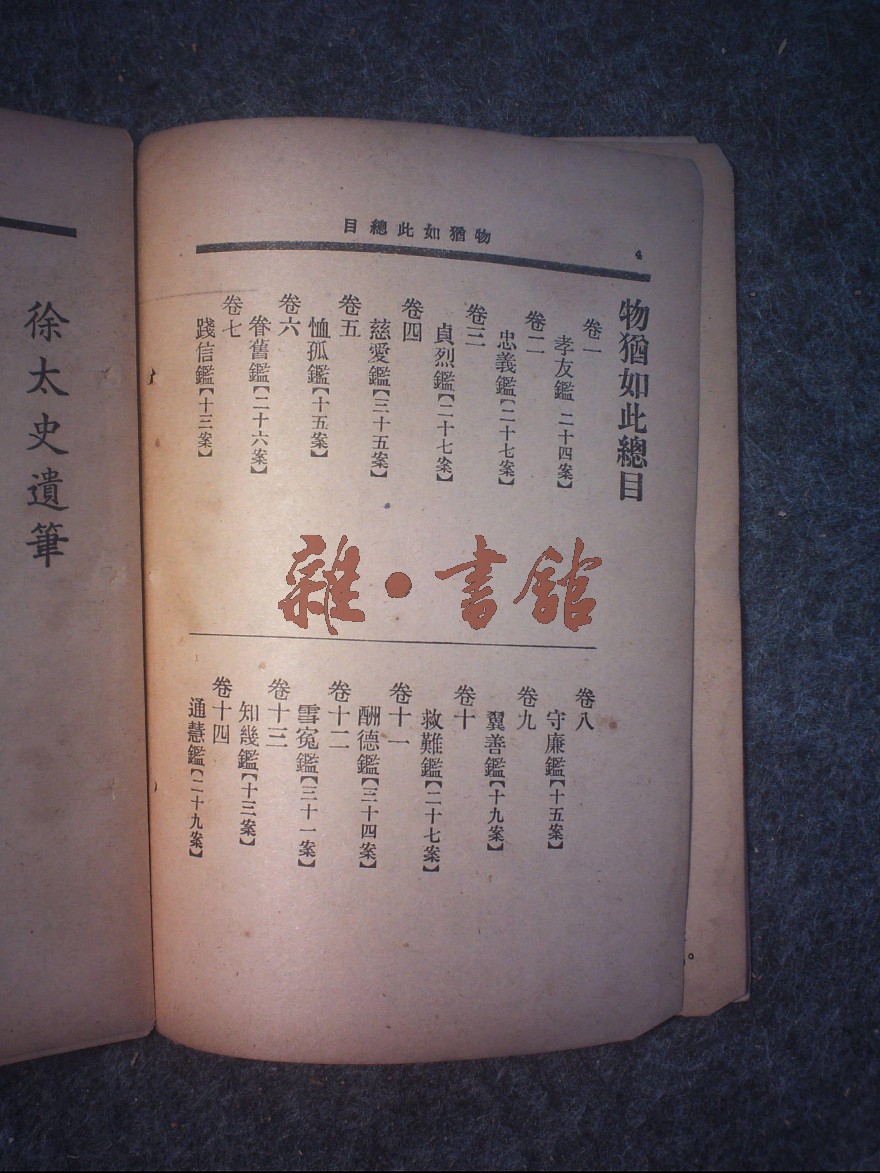 目總此如猶物
4
物猶如此總目
卷一
孝友鑑 二十四案
卷二
忠義鑑【二十七案】
卷三
貞烈鑑【二十七案】
卷四
慈愛鑑【三十五案】
卷五
恤孤鑑【十五案】
卷六
眷舊鑑【二十六案】
卷七
踐信鑑【十三案】
卷八
守廉鑑【十五案】
卷九
翼善鑑【十九案】
卷十
救難鑑【二十七案】
卷十一
酬德鑑【三十四案】
卷十二
雪寃鑑【三十一案】
卷十三
知幾鑑【十三案】
卷十四
通慧鑑【二十九案】
徐太史遺筆
雜·書館